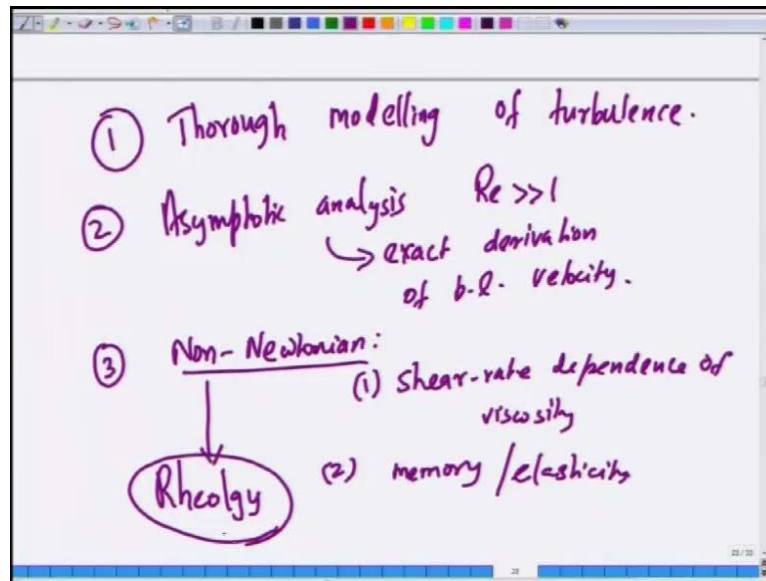 ① Thorough modelling of turbulence.
② Asymptotic analysis Re >> 1
↳ exact derivation
of b.l. velocity.
③ Non-Newtonian:
(1) shear-rate dependence of
viscosity
(2) memory/elasticity
Rheolgy
23/33
23